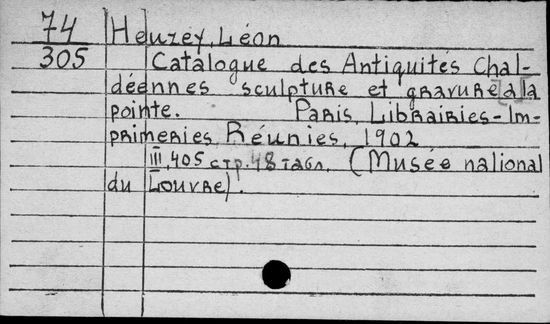 74 Heuzey, Léon
305 Catalogue des Antiquités Chal-
déennes sculpture et gravure à la
pointe. Paris, Librairies-Im-
primeries Réunies, 1902
III, 405 стр. 48 табл. (Musée national
du Louvre).